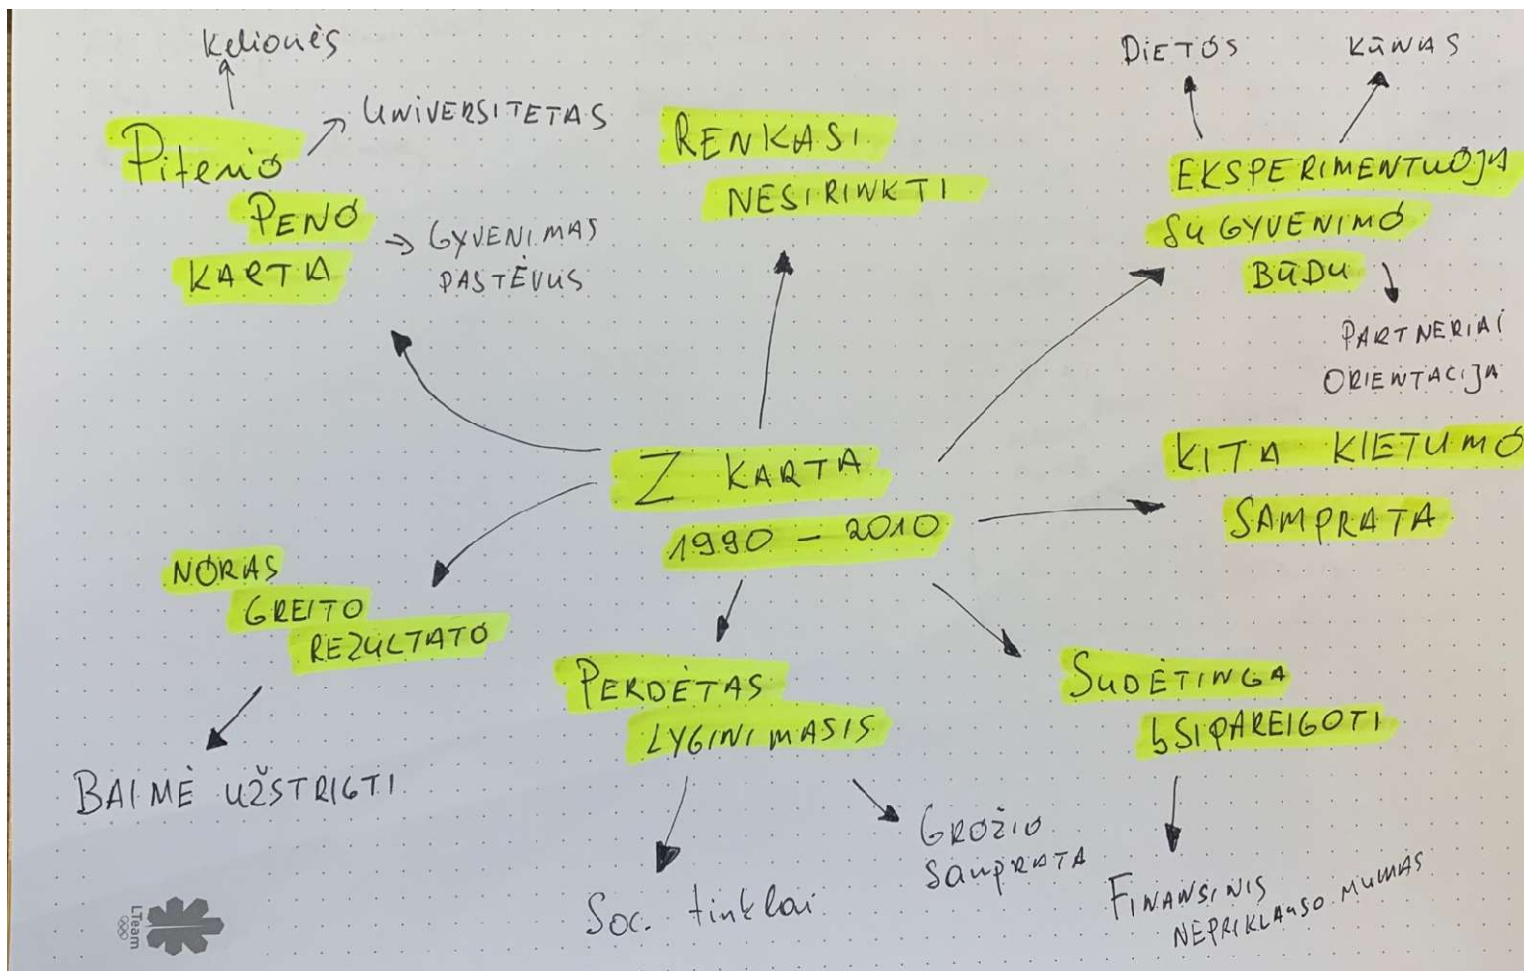 Kelionės
UNIVERSITETAS
Piterio
PENO
KARTA
GYVENIMAS
PASTĖVUS
RENKASI
NESIRINKTI
DIETOS
KŪNAS
EKSPERIMENTUOJA
SU GYVENIMO
BŪDU
PARTNERIAI
ORIENTACIJA
Z KARTA
1990 – 2010
KITA KIETUMO
SAMPRATA
NORAS
GREITO
REZULTATO
BAIMĖ UŽSTRIGTI
PERDĖTAS
LYGINIMASIS
Soc. tinklai
GROŽIO
SAMPRATA
SUDĖTINGA
ĮSIPAREIGOTI
FINANSINIS
NEPRIKLAUSOMUMAS
LTeam